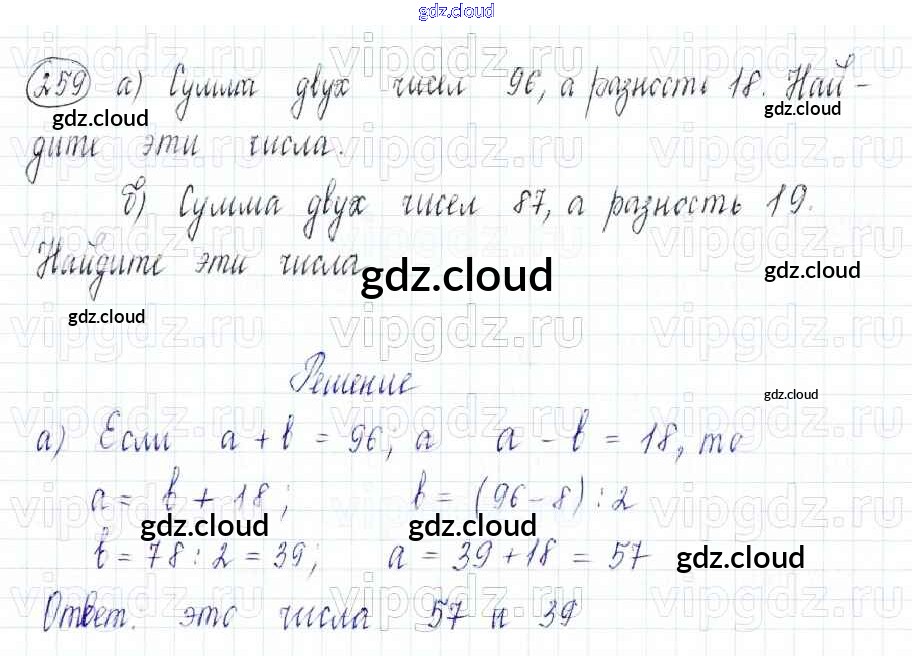 gdz.cloud
259 а) Сумма двух чисел 96, а разность 18. Най-
gdz.cloud
gdz.cloud
дите эти числа.
б) Сумма двух чисел 87, а разность 19.
Найдите эти числа
gdz.cloud
gdz.cloud
gdz.cloud
Решение
gdz.cloud
а) Если a + b = 96; а a - b = 18, то
a = b + 18; b = (96 - 8) : 2
gdz.cloud
gdz.cloud
b = 78 : 2 = 39; a = 39 + 18 = 57
gdz.cloud
Ответ: это числа 57 и 39
vipgdz.ru